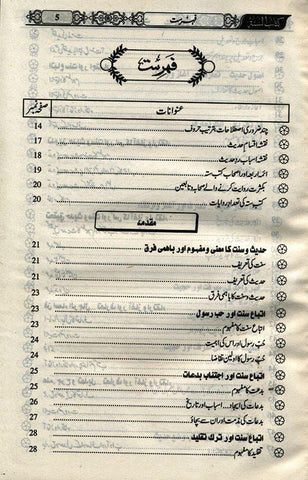 5 فہرست کتاب السنۃ
فہرست
عنوانات صفحہ نمبر
چند ضروری اصطلاحات بترتیب حروف 14
نقشہ اقسام حدیث 17
نقشہ اسباب ردّ حدیث 18
ائمہ اربعہ اور اصحاب کتب ستہ 19
بکثرت روایت کرنے والے صحابہ و تابعین 20
کتب ستہ کی تعداد روایات 20
مقدمہ
حدیث و سنت کا معنی و مفہوم اور باہمی فرق 21
سنت کی تعریف 21
حدیث کی تعریف 22
حدیث و سنت کا باہمی فرق 23
اتباع سنت اور حب رسول 23
اتباع سنت کا مفہوم 23
حب رسول اور اس کی اہمیت 24
حب رسول کا اولین تقاضا 24
اتباع سنت اور اجتناب بدعات 25
بدعت کا مفہوم 25
بدعات کی ایجاد، اسباب اور تاریخ 26
بدعات کی مذمت اور ان سے بچاؤ 27
اتباع سنت اور ترک تقلید 28
تقلید کا مفہوم 28